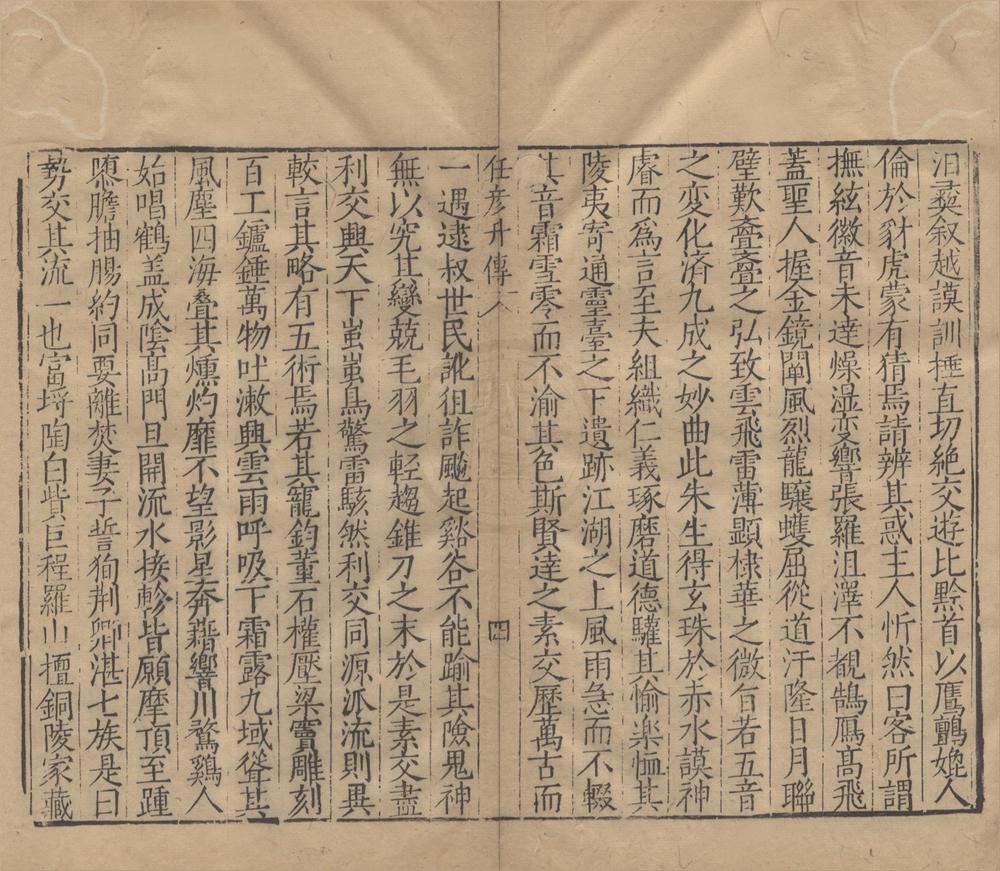 汨彞叙越謨訓捶直切絶交遊比黔首以鷹鸇媲人
倫於豺虎蒙有猜焉請辨其惑主人忻然曰客所謂
撫絃徽音未達燥湿变響張羅沮澤不覩鵠鴈髙飛
蓋聖人握金鏡闡風烈龍驤蠖屈從道汙隆日月聯
壁歎亹亹之弘致雲飛雷薄顯棣華之微旨若五音
之変化済九成之妙曲此朱生得玄珠於赤水謨神
睿而為言至夫組織仁義琢磨道德驩其愉楽恤其
陵夷寄通靈臺之下遺跡江湖之上風雨急而不輟
其音霜雪零而不渝其色斯賢達之素交歷萬古而
任彦升傳 四
一遇逮叔世民訛徂詐飈起谿谷不能踰其險鬼神
無以究其變兢毛羽之輕趨錐刀之末於是素交盡
利交興天下蚩蚩鳥驚雷駭然利交同源派流則異
較言其略有五術焉若其寵鈞董石權壓梁竇雕刻
百工鑪錘萬物吐漱興雲雨呼吸下霜露九域聳其
風塵四海叠其燻灼靡不望影星奔藉響川騖鷄人
始唱鶴盖成陰髙門旦開流水接軫皆願摩頂至踵
隳膽抽腸約同要離焚妻子誓徇荆卿湛七族是曰
勢交其流一也富埒陶白貲巨程羅山擅銅陵家藏